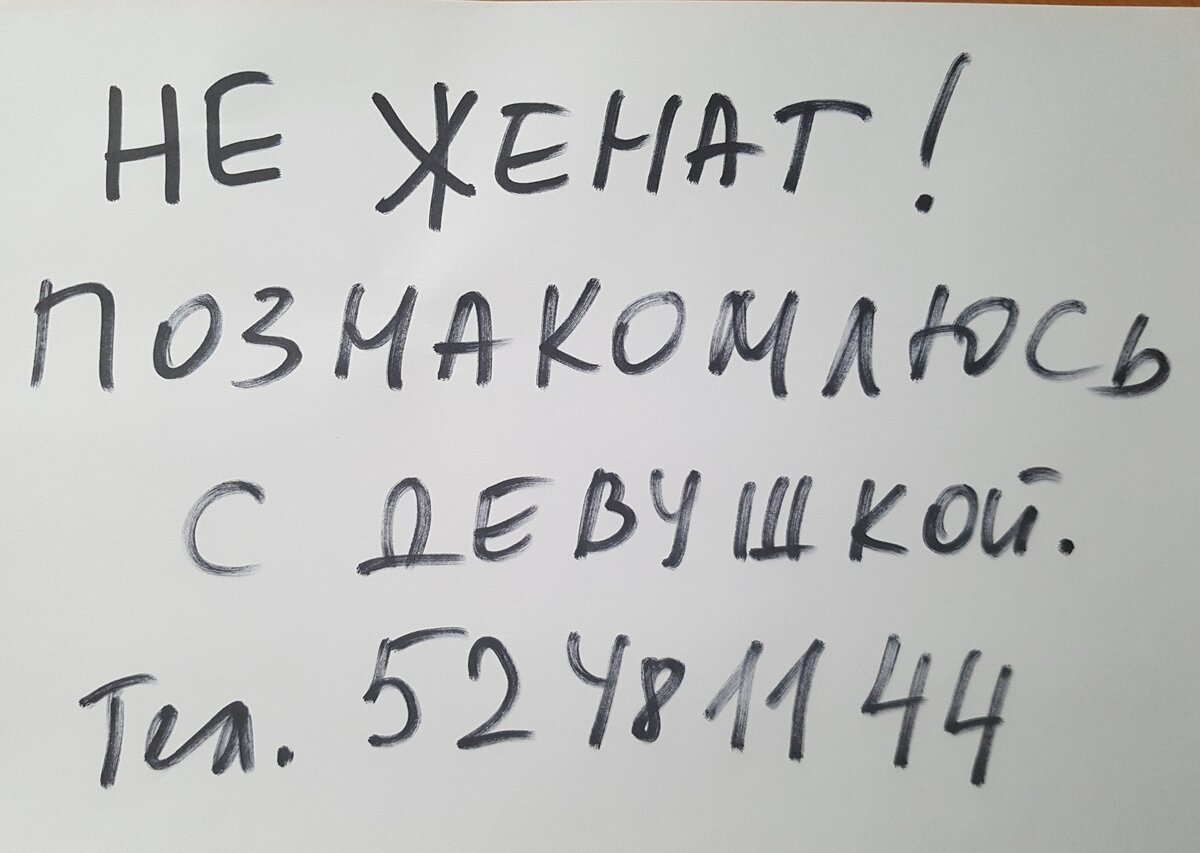 НЕ ЖЕНАТ!
ПОЗНАКОМЛЮСЬ
С ДЕВУШКОЙ.
Тел. 52 48 11 44